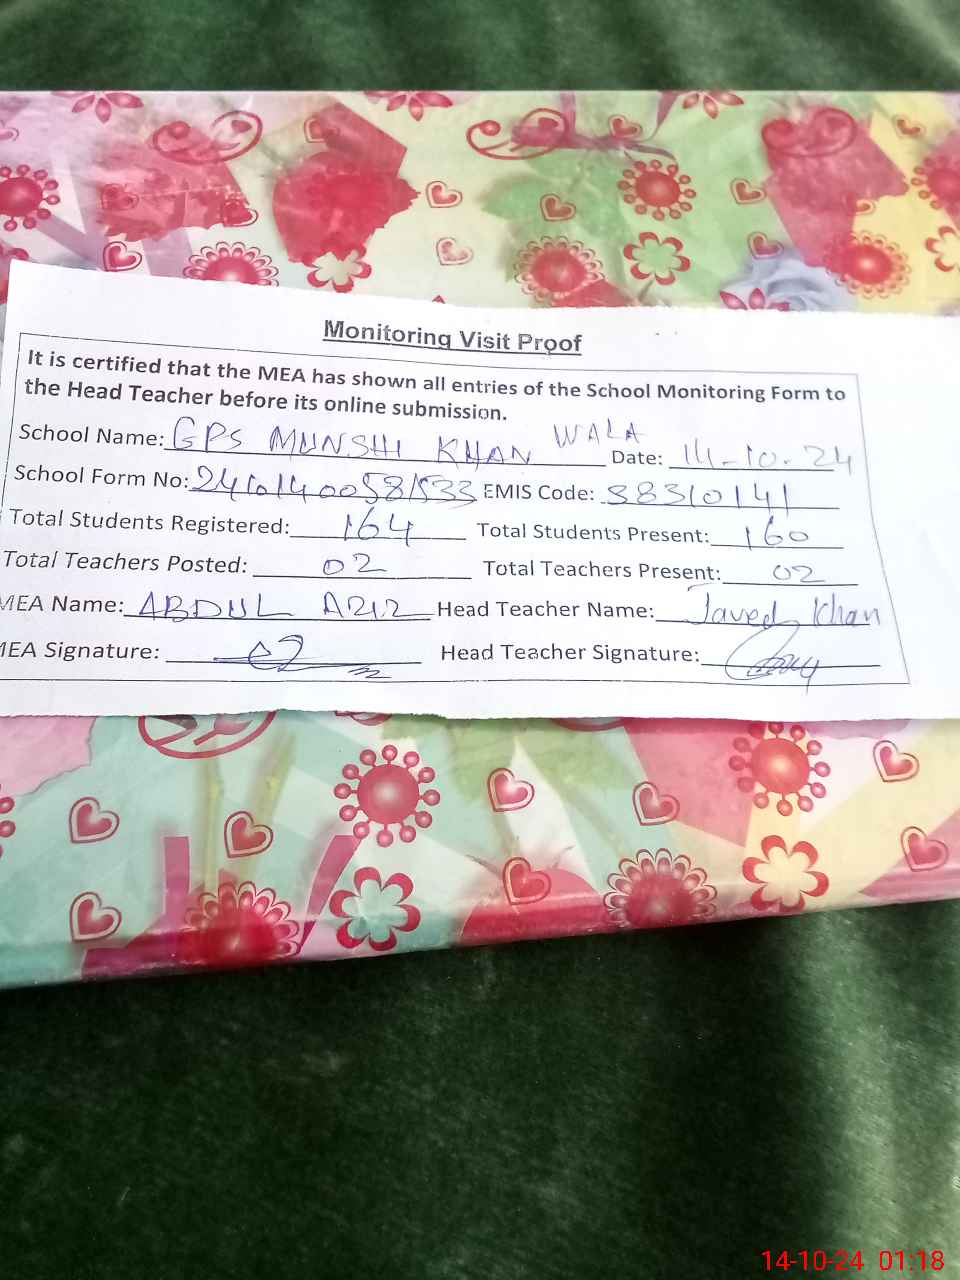 Monitoring Visit Proof
It is certified that the MEA has shown all entries of the School Monitoring Form to
the Head Teacher before its online submission.
School Name: GPS MUNSHI KHAN WALA Date: 14-10-24
School Form No: EMIS Code: 38310141
Total Students Registered: 164 Total Students Present: 160
Total Teachers Posted: 02 Total Teachers Present: 02
MEA Name: ABDUL AZIZ Head Teacher Name: Javed Khan
MEA Signature: Head Teacher Signature:
14-10-24 01:18